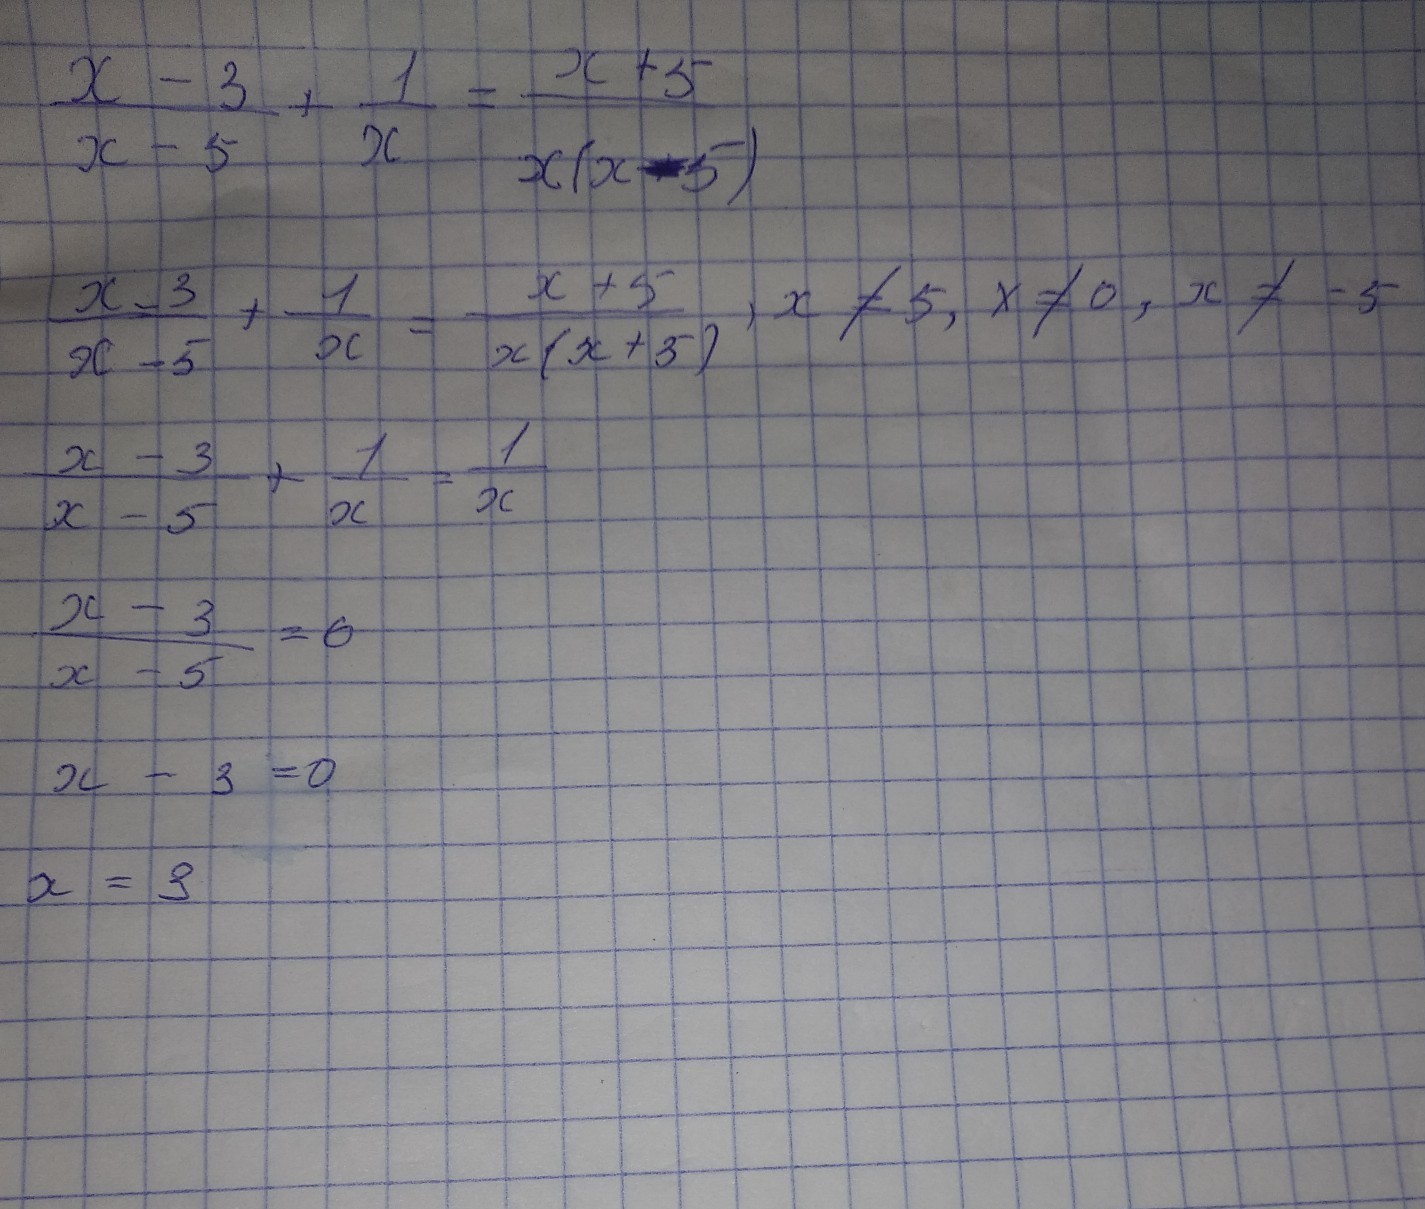 (x - 3)/(x - 5) + 1/x = (x + 5)/(x(x - 5))
(x - 3)/(x - 5) + 1/x = (x + 5)/(x(x + 5)), x ≠ 5, x ≠ 0, x ≠ -5
(x - 3)/(x - 5) + 1/x = 1/x
(x - 3)/(x - 5) = 0
x - 3 = 0
x = 3